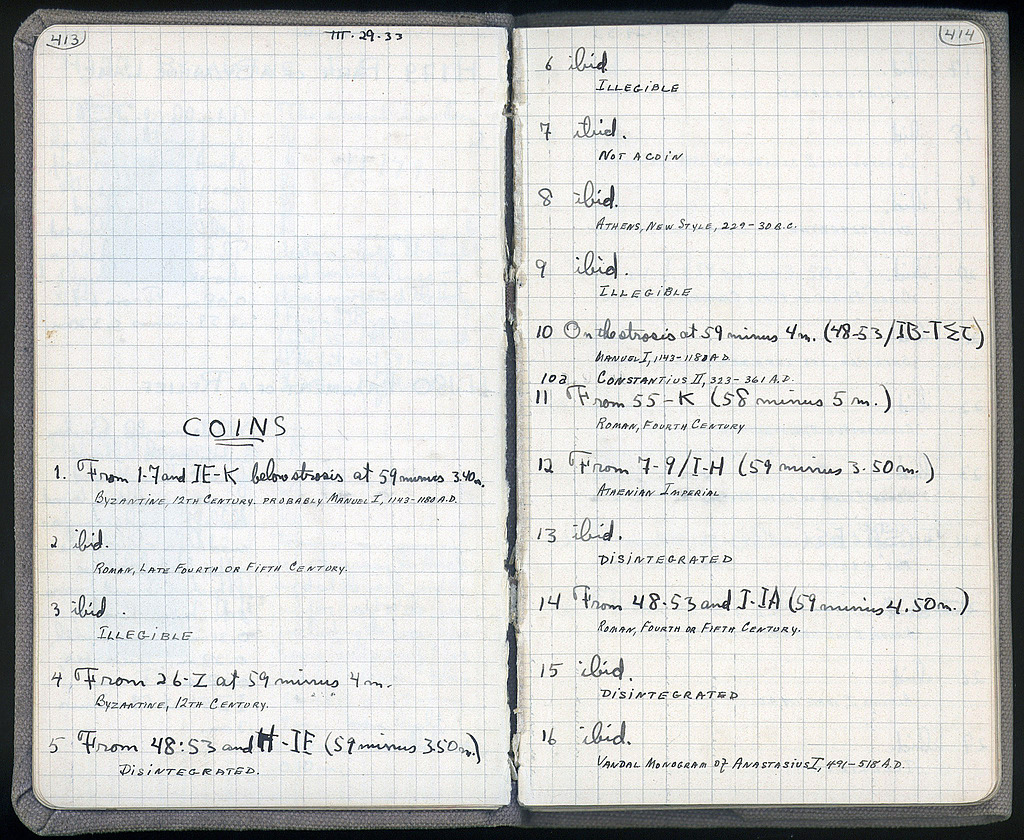 413
III.29.33
COINS
1. From 1-7 and IE-K below strosis at 59 minus 3.40m.
BYZANTINE, 12TH CENTURY. PROBABLY MANUEL I, 1143-1180 A.D.
2 ibid.
ROMAN, LATE FOURTH OR FIFTH CENTURY.
3 ibid.
ILLEGIBLE
4 From 26-I at 59 minus 4m.
BYZANTINE, 12TH CENTURY.
5 From 48:53 and H-IE (59 minus 3.50m.)
DISINTEGRATED.
414
6 ibid
ILLEGIBLE
7 ibid.
NOT A COIN
8 ibid.
ATHENS, NEW STYLE, 229-30 B.C.
9 ibid.
ILLEGIBLE
10 On the strosis at 59 minus 4m. (48-53/IB-ΙΣΤ)
MANUEL I, 1143-1180 A.D.
10a CONSTANTIUS II, 323-361 A.D.
11 From 55-K (58 minus 5m.)
ROMAN, FOURTH CENTURY
12 From 7-9/I-H (59 minus 3.50m.)
ATHENIAN IMPERIAL
13 ibid.
DISINTEGRATED
14 From 48-53 and I-IA (59 minus 4.50m.)
ROMAN, FOURTH OR FIFTH CENTURY.
15 ibid.
DISINTEGRATED
16 ibid.
VANDAL MONOGRAM OF ANASTASIUS I, 491-518 A.D.